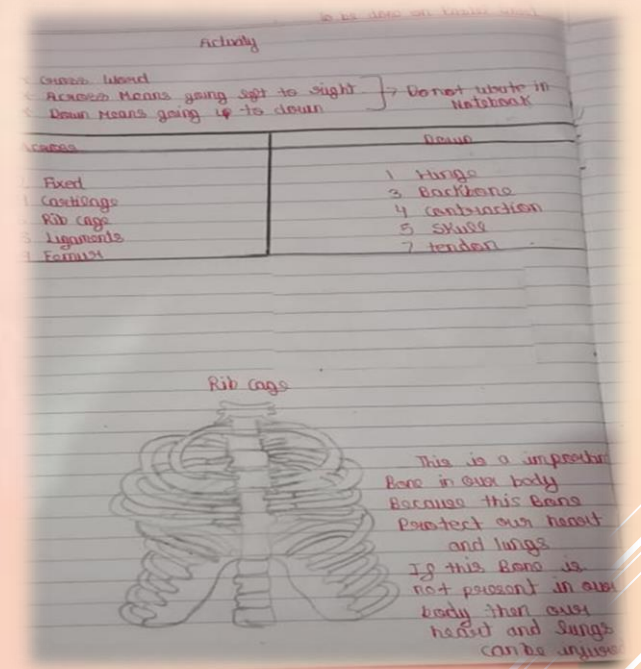 To be done on
Activity
Cross Word
Across Means going left to right
Down Means going up to down
Do not write in
Notebook
Across
Down
Fixed
Cartilage
Rib cage
Ligaments
Femur
1 Hinge
3 Backbone
4 contraction
5 Skull
7 tendon
Rib cage
This is a important
Bone in our body
Because this Bone
Protect our heart
and lungs
If this Bone is
not present in our
body then our
heart and lungs
can be injured